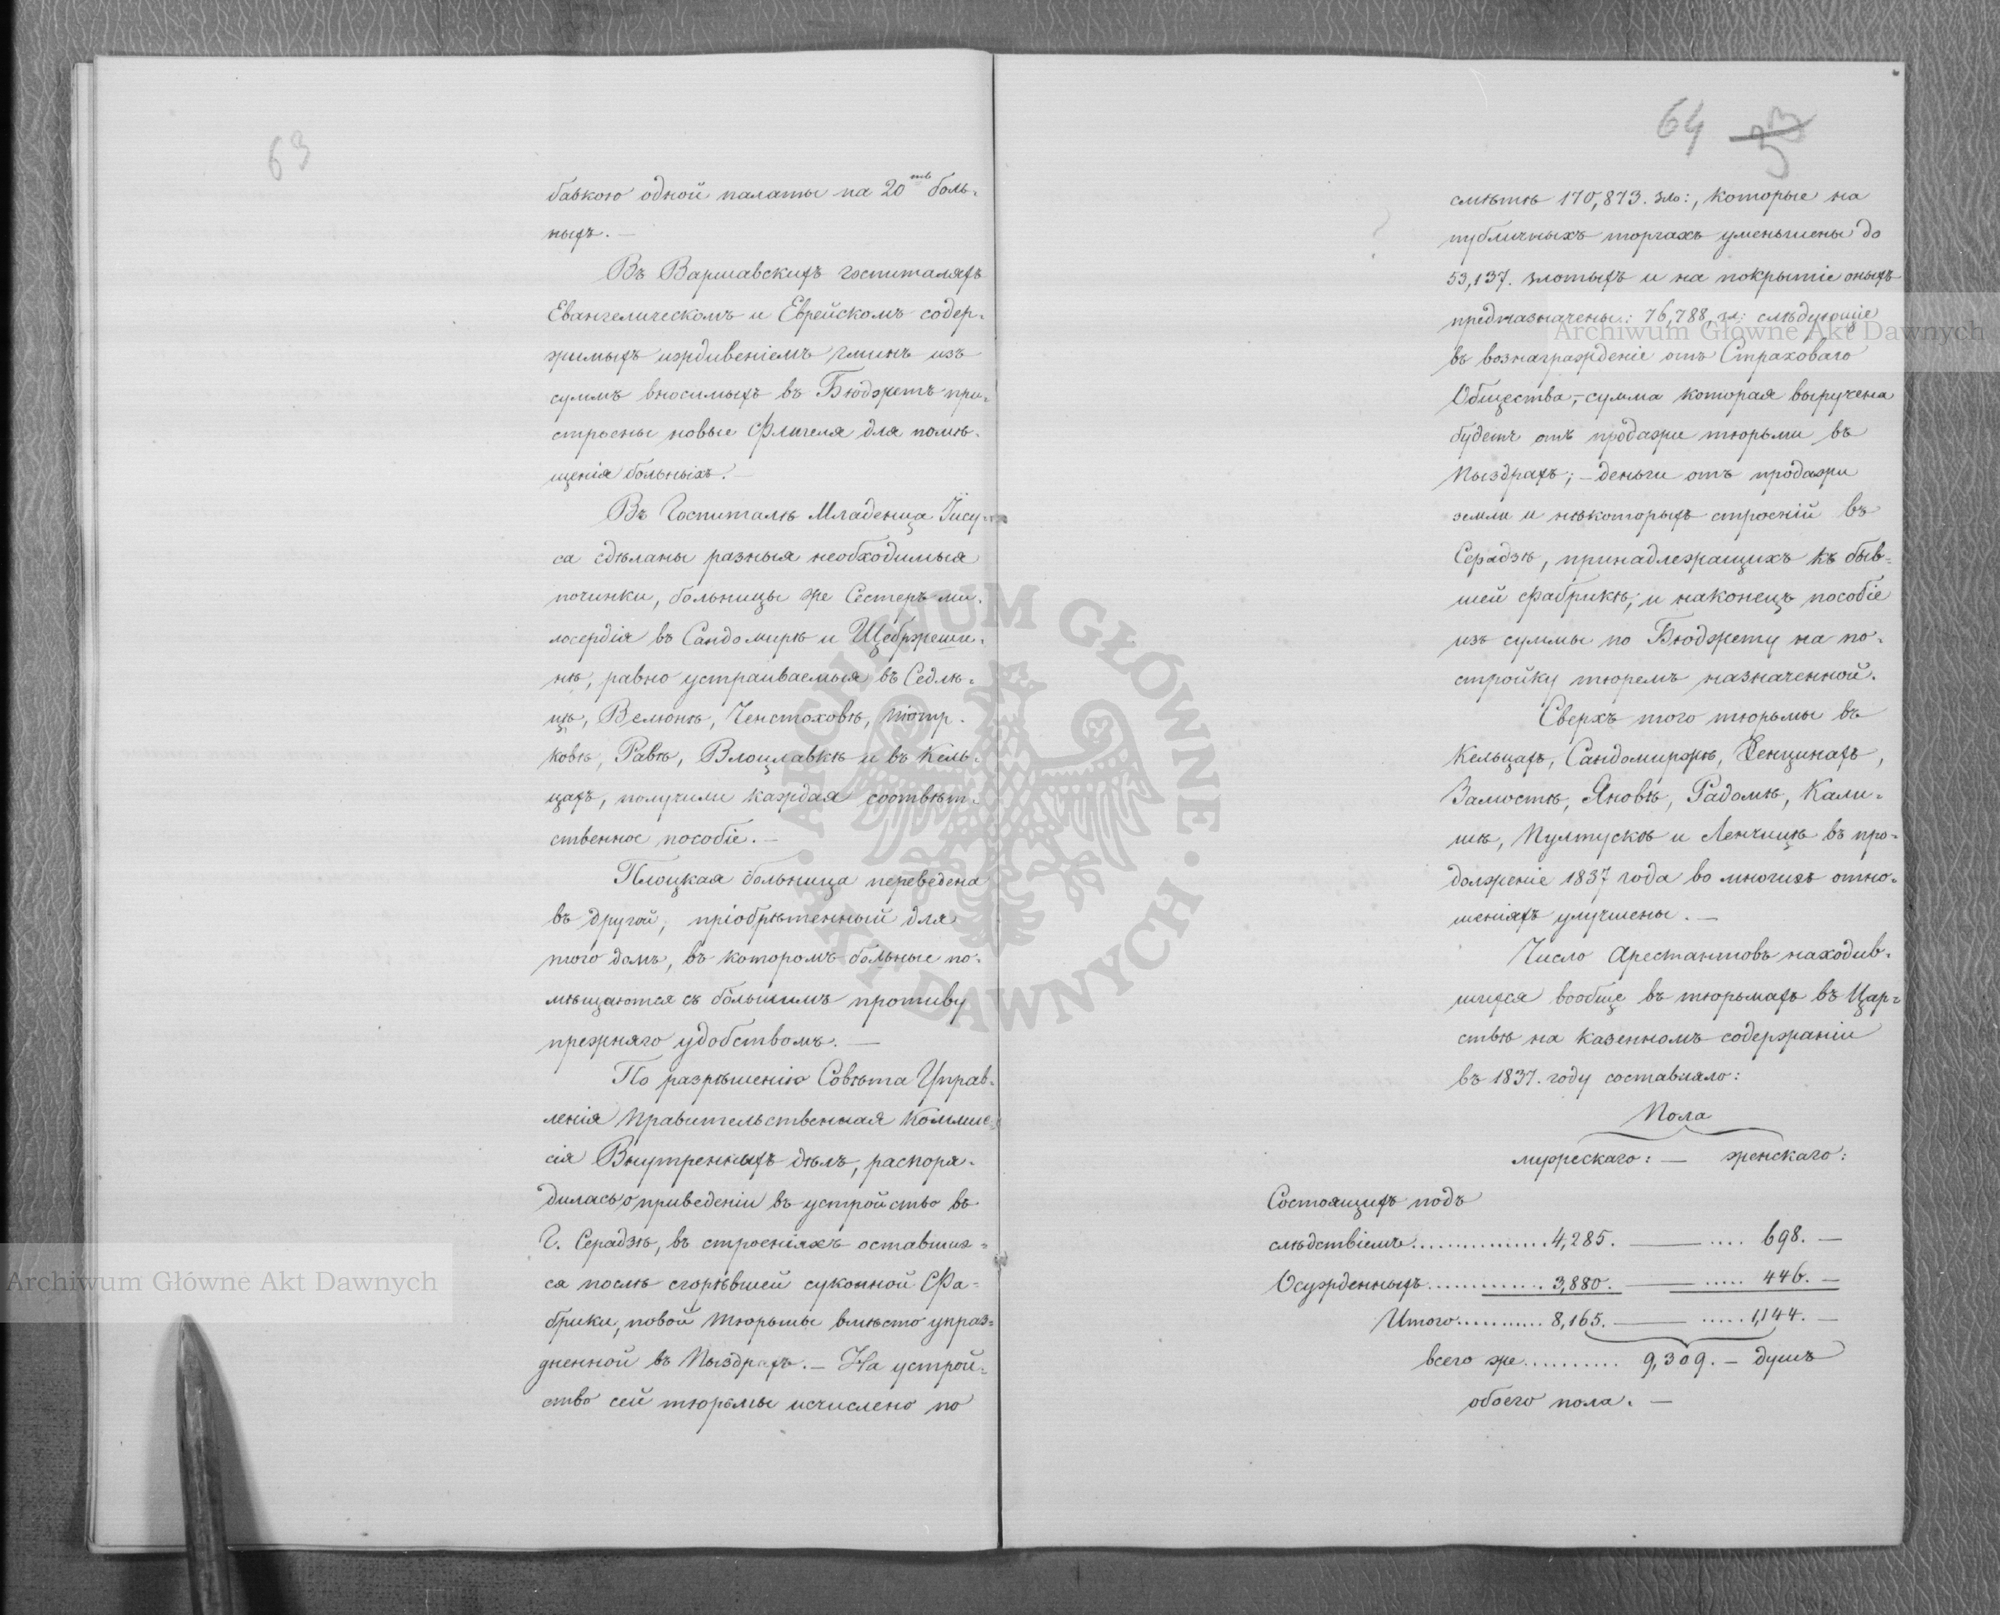 63
бавкою одной палаты на 20ть боль-
ныхъ. —
Въ Варшавскихъ госпиталяхъ
Евангелическомъ и Еврейскомъ содер-
жимыхъ иждивеніемъ гминъ изъ
суммъ вносимыхъ въ Бюджетъ при-
строены новые Флигеля для помѣ-
щенія больныхъ. —
Въ Госпиталѣ Младенца Іису-
са сдѣланы разныя необходимыя
починки, больницы же Сестеръ ми-
лосердія въ Сандомирѣ и Щебржеши-
нѣ, равно устраиваемыя въ Седлѣ-
цѣ, Велюнѣ, Ченстоховѣ, Піотр-
ковѣ, Равѣ, Влоцлавкѣ и въ Кель-
цахъ, получили каждая соотвѣт-
ственное пособіе. —
Плоцкая больница переведена
въ другой, пріобрѣтенный для
того домъ, въ которомъ больные по-
мѣщаются съ большимъ противу
прежняго удобствомъ. —
По разрѣшенію Совѣта Управ-
ленія Правительственная Коммис-
сія Внутреннихъ дѣлъ, распоря-
дилась о приведеніи въ устройство въ
Г. Серадзѣ, въ строеніяхъ оставших-
ся послѣ сгорѣвшей суконной Фа-
брики, новой тюрьмы вмѣсто упраз-
дненной въ Пыздрахъ. — На устрой-
ство сей тюрьмы исчислено по
64 53
смѣтѣ 170,873. зло:, которые на
публичныхъ торгахъ уменьшены до
53,137. злотыхъ и на покрытіе оныхъ
предназначены: 76,788, зл: слѣдующіе
въ вознагражденіе отъ Страховаго
Общества, — сумма которая выручена
будетъ отъ продажи тюрьмы въ
Пыздрахъ; — деньги отъ продажи
земли и нѣкоторыхъ строеній въ
Серадзѣ, принадлежащихъ къ быв-
шей фабрикѣ; и наконецъ пособіе
изъ суммы по Бюджету на по-
стройку тюремъ назначенной.
Сверхъ того тюрьмы въ
Кельцахъ, Сандомиржѣ, Хенцинахъ,
Замостьѣ, Яновѣ, Радомѣ, Кали-
шѣ, Пултускѣ и Ленчицѣ въ про-
долженіе 1837 года во многихъ отно-
шеніяхъ улучшены. —
Число Арестантовъ находив-
шихся вообще въ тюрьмахъ въ Цар-
ствѣ на казенномъ содержаніи
въ 1837. году составляло:
Пола
мужескаго: — женскаго:
Состоящихъ подъ
слѣдствіемъ................4,285. — .... 698. —
Осужденныхъ.............3,880. — ..... 446. —
Итого...........8,165. — .....1,144. —
всего же.......... 9,309. — душъ
обоего пола. —
Archiwum Główne Akt Dawnych
Archiwum Główne Akt Dawnych
ARCHIWUM GŁÓWNE AKT DAWNYCH